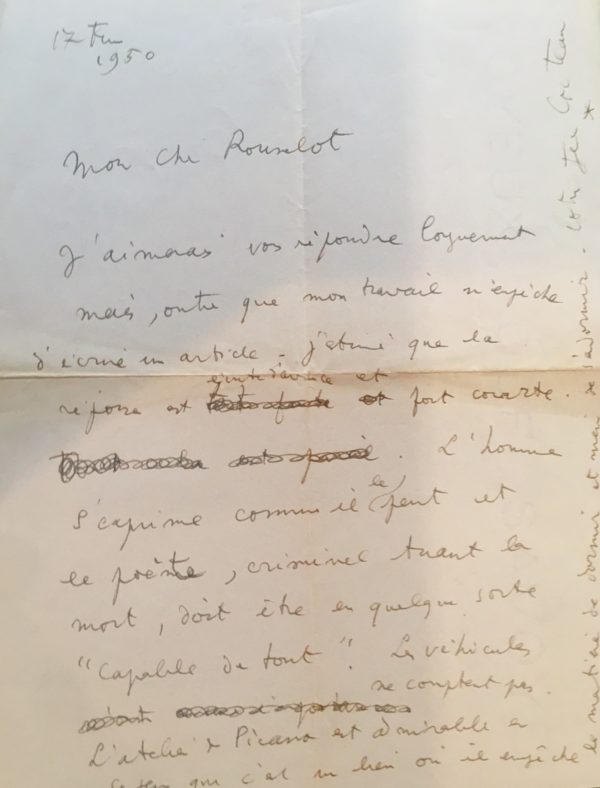 17 Fev
1950
Mon cher Rousselot
J'aimerais vous répondre longuement
mais, outre que mon travail m'empêche
d'écrire un article - j'estime que la
réponse est et fort courte.
L'homme
s'exprime comme il le peut et
le poète, criminel tuant la
mort, doit être en quelque sorte
"capable de tout". Les véhicules
ne comptent pas.
L'atelier de Picasso est admirable en
ce sens que c'est un lieu où il empêche
la matière de dormir et même de s'endormir - votre Jean Cocteau
*